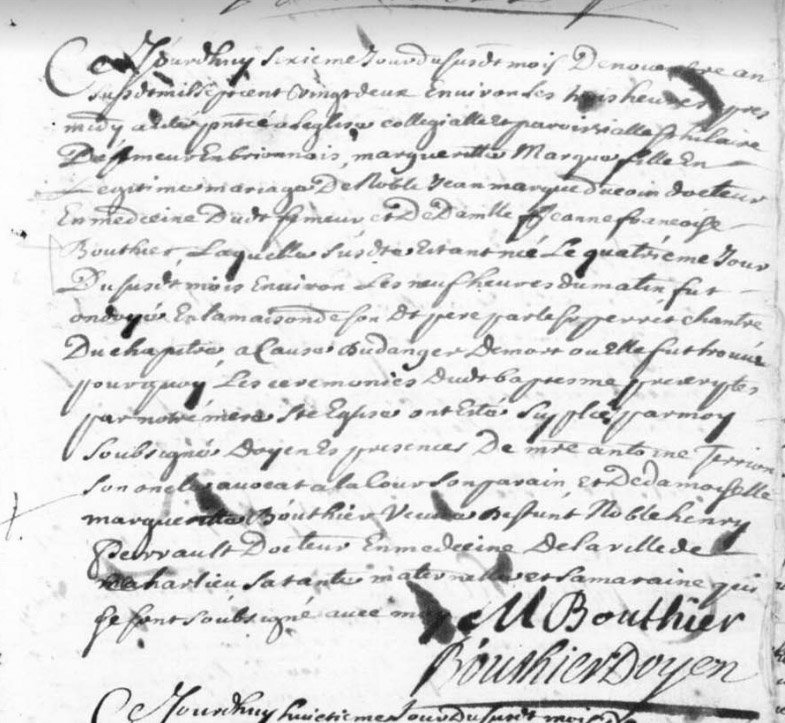 Ce Jourdhuy sixieme Jour du susdt mois De novembre an
susdt mil sept cent vingt deux Environ les trois heures apres
midy a été pntée a Leglise collegialle Et parroissialle St hilaire
De Semeur En brionnois, margueritte Marque fille En
Legitime mariage De Noble Jean marque ducoin docteur
En medecine Dudt Semeur et De Damlle Jeanne francoise
Bouthier, Laquelle susdte Estant née Le quatrieme Jour
Du susdt mois Environ Les neuf heures du matin fut
ondoyée En la maison de son Dt pere par le Sr perret chantre
Du chapitre a Cause Du danger De mort ou Elle fut trouvée
pourquoy Les ceremonies Dudt baptesme prescrytes
par notre mere Ste Eglise ont Esté supplées par moy
soubsigné Doyen Es presences De mre antoine Terrion
son oncle avocat a la Cour son parain Et De damoiselle
margueritte Bouthier Veuve Defunt Noble henry
Perrault Docteur En medecine De la ville de
charlieu sa tante maternelle et sa maraine qui
se sont soubsigné avec moy
M Bouthier
Bouthier Doyen
Ce Jourdhuy huictieme Jour Du susdt mois De